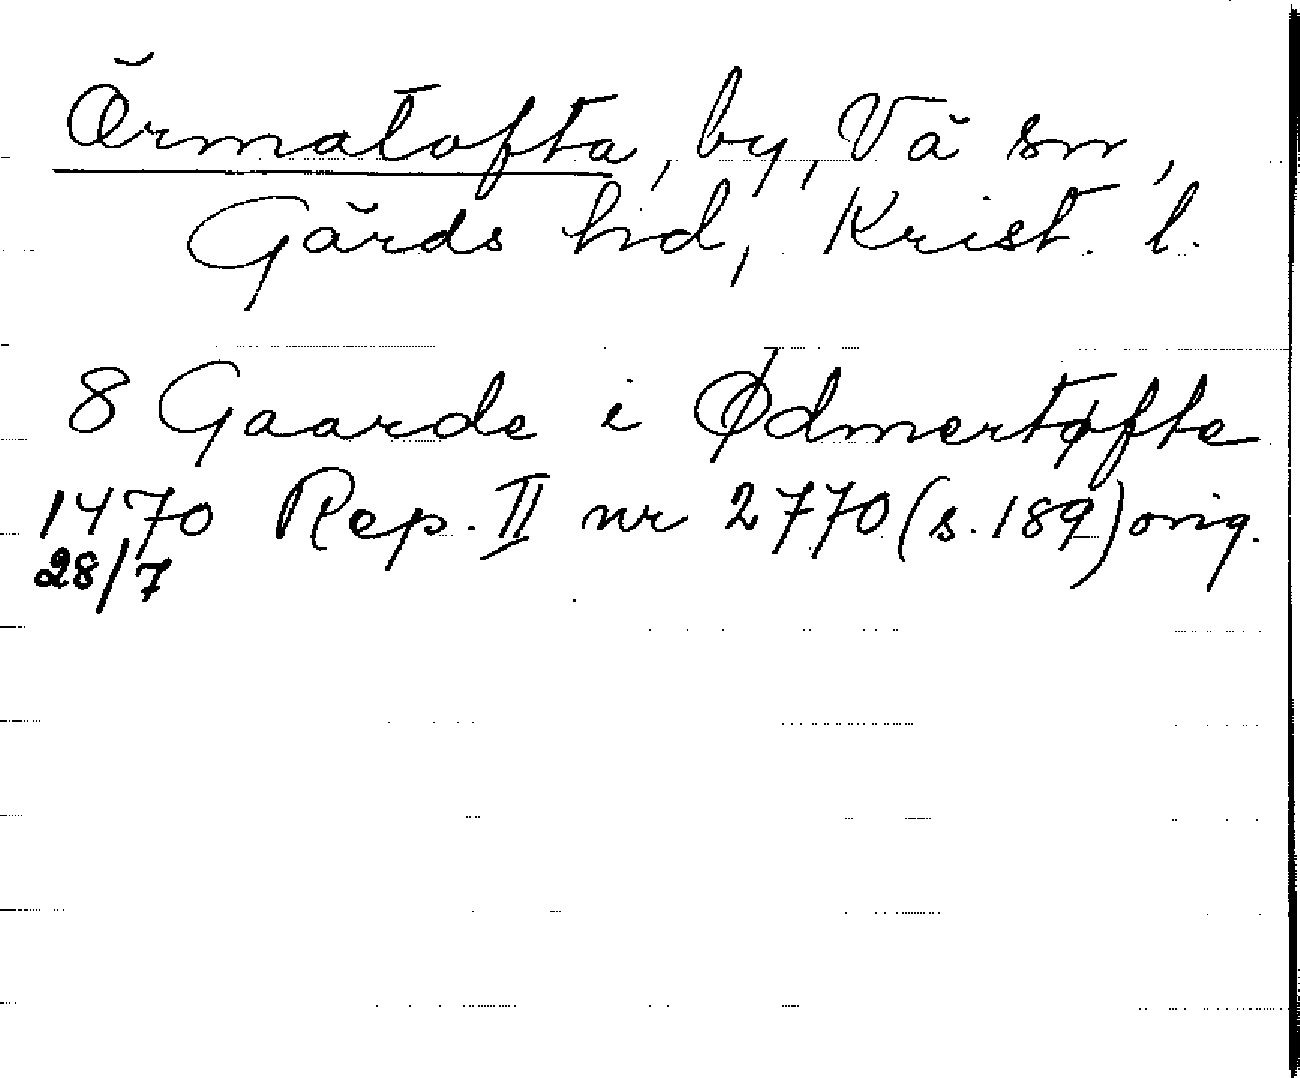 Örmatofta, by, Vä sn,
Gärds hd, Krist. l.
8 Gaarde i Ødmertøfte
1470 Rep. II nr 2770 (s. 189) orig.
28/7